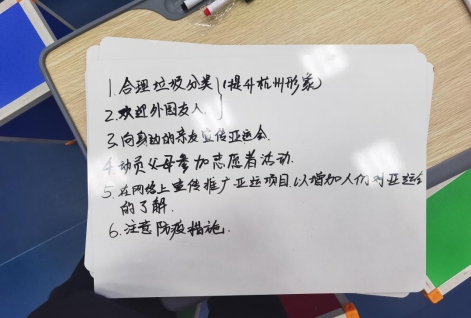 1.合理垃圾分类}(提升杭州形象)
2.欢迎外国友人.
3.向身边的亲友宣传亚运会.
4.动员父母参加志愿者活动.
5.在网络上宣传推广亚运项目.以增加人们对亚运会
的了解.
6.注意防疫措施.